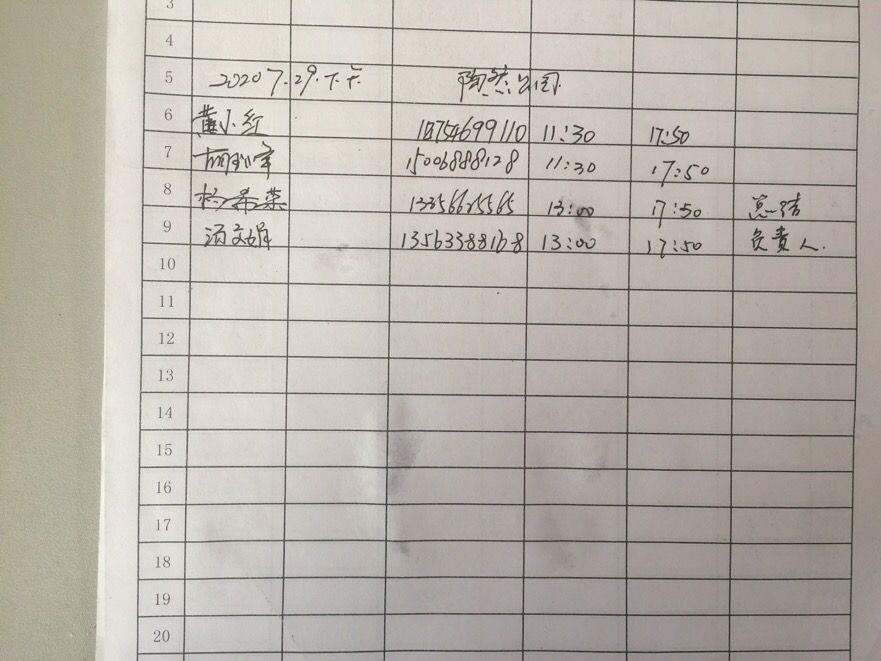 3
4
5 2020 7.29.下午 陶然公园.
6 黄小红 11:30 17:50
7 15006888128 11:30 17:50
8 13:00 17:50 总结
9 汤文娟 13563388168 13:00 17:50 负责人.
10
11
12
13
14
15
16
17
18
19
20